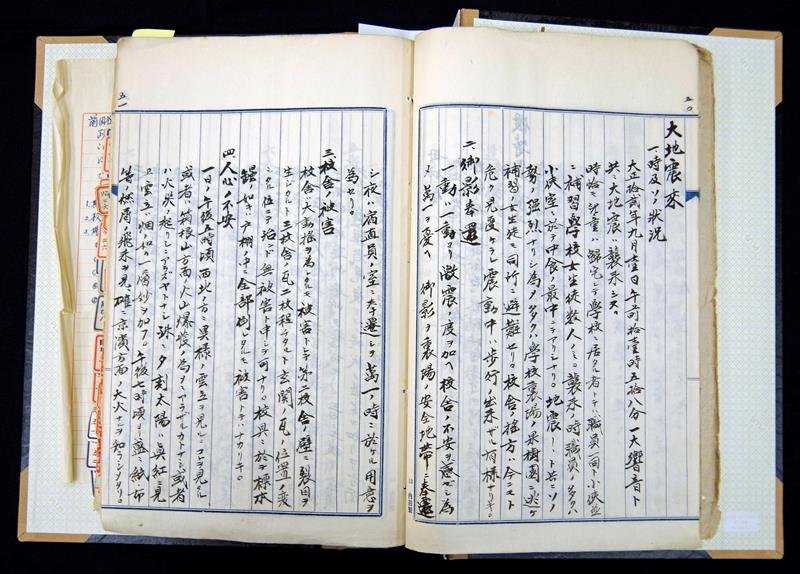 五〇
大地震来
一、時及ソノ状況
大正拾貳年九月壹日午前拾壹時五拾八分一大響音ト
共ニ大地震ハ襲来シヌ。
時恰モ児童ハ帰宅シテ学校ニ居タル者トテハ職員一同ト小使並
ニ補習学校女生徒数人ノミ。襲来ノ時職員ノ多クハ
小使室ニ於テ中食ノ最中ニテアリシナリ。地震ト共ニソノ
勢ノ強烈ナリシ為メ多クハ学校裏端ノ果樹園ニ逃ゲ
補習ノ女生徒モ同所ニ避難セリ。校舎ノ搖方ハ今ニモ
危ク見受ケラレ震動中ハ歩行ノ出来ザル有様ナリキ。
二、御影奉遷
一動ハ一動ヨリ激震ノ度ヲ加ヘ校舎ノ不安ヲ感ゼシ為
メ万一ヲ憂ヘ 御影ヲ裏陽ノ安全地帯ニ奉遷
五一
シ夜ハ宿直員ノ室ニ奉遷シテ萬一ノ時ニ於ケル用意ヲ
為セリ。
三、校舎ノ被害
校舎ノ大動搖ヲ為シタルモ被害トシテ第二校舎ノ壁ニ裂目ヲ
生ジタルト三校舎ノ瓦二枚程落チタルト玄関ノ瓦ノ位置ノ変
ジタル位ニテ殆ンド無被害ト申シテ可ナリ。校具ニ於テ標本
類ノ如キハ戸棚ノ中ニ全部倒レタルモ被害トテハナカリキ。
四、人心ノ不安
一日ノ午後五時頃西北ノ方ニ異様ノ雲立ヲ見ル。コヲ見シ
或者ハ箱根山方面ノ火山爆發ノ為メニアラザルカトナシ或者
ハ火災ノ起リシニアラズヤトナシ殊ニ夕刻太陽ハ真紅ニ見
エ雲立ハ烟ノ如ク一層紗ヲ加フ。午後七時頃ニ至リ紙布
等ノ燃屑ノ飛来ヲ見、確ニ京濱方面ノ大火ナルヲ知ラシメタリ。